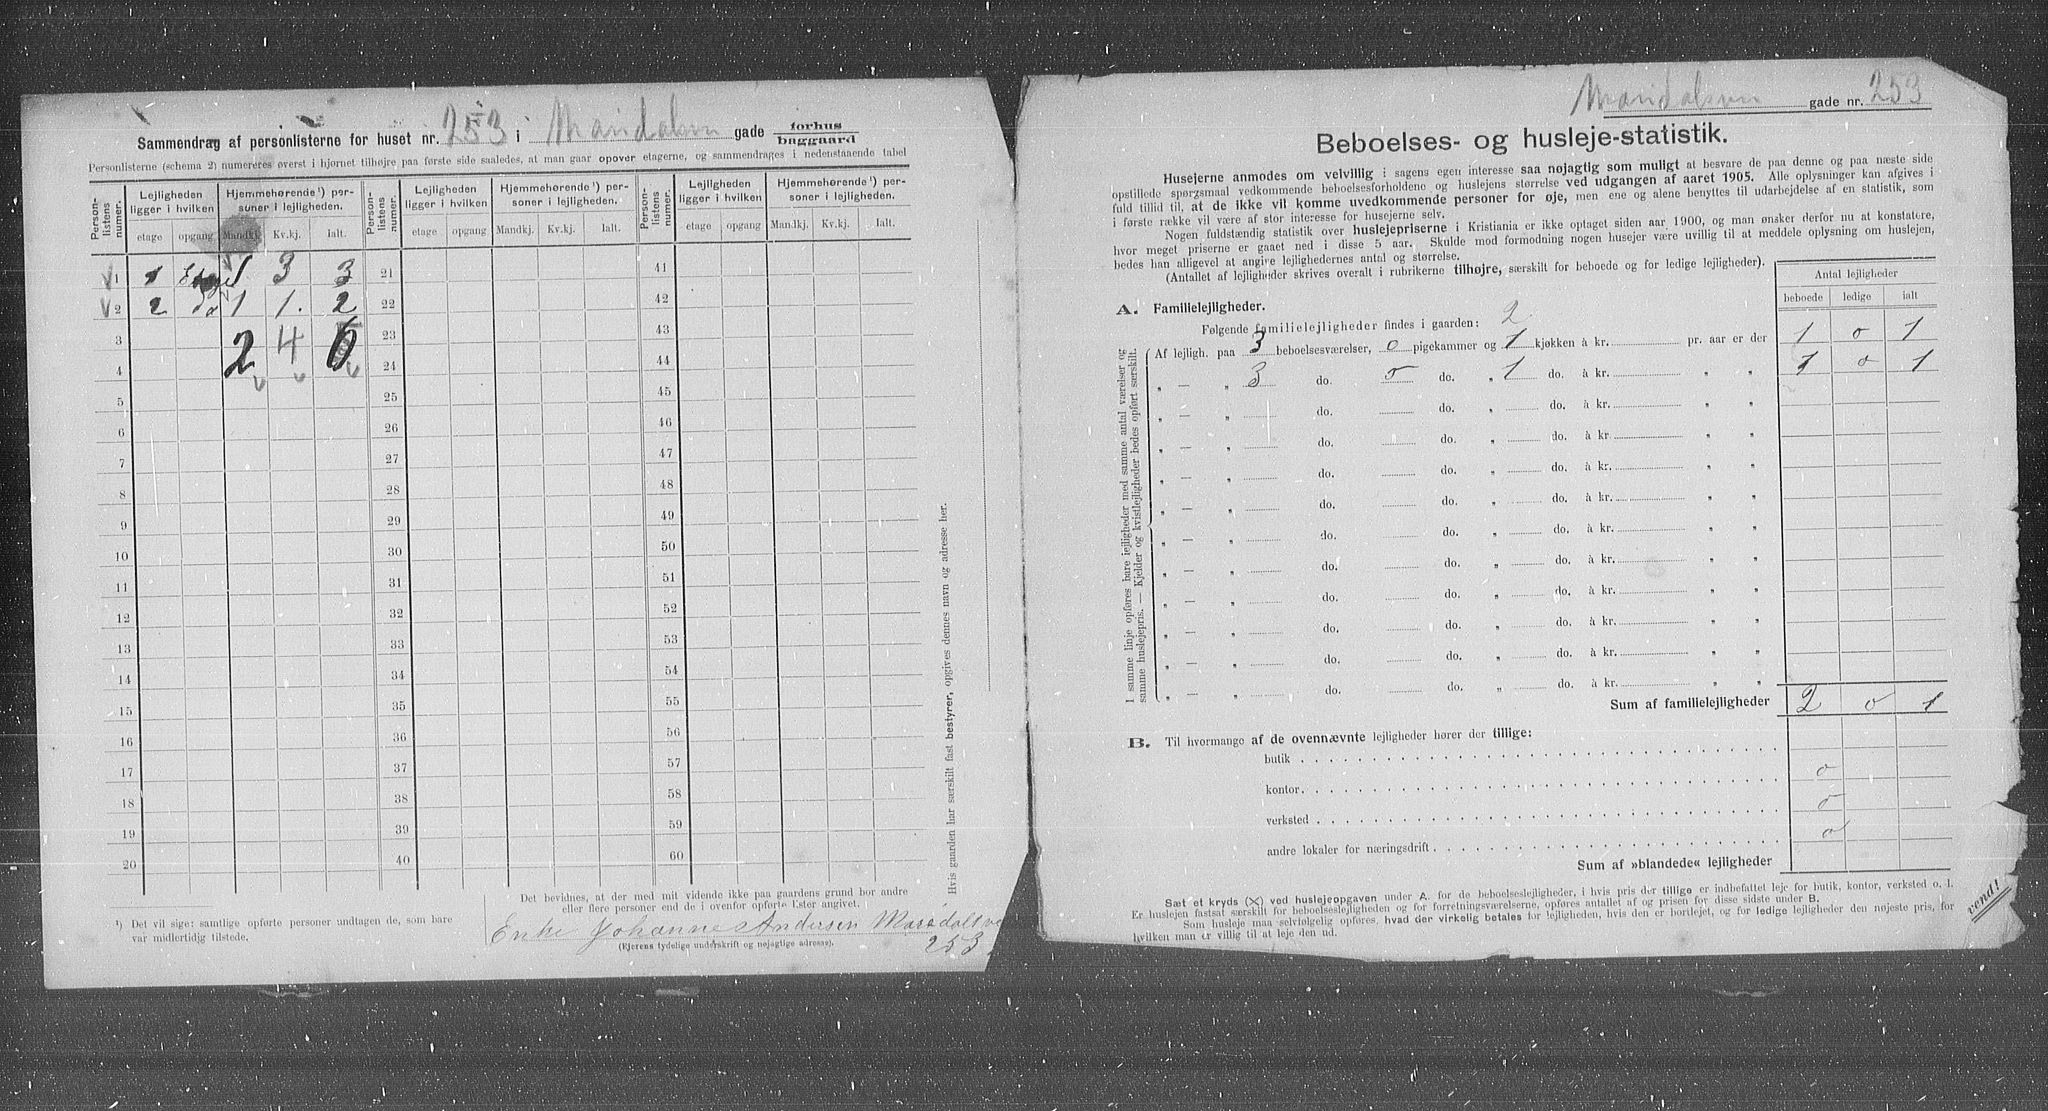 Sammendrag af personlisterne for huset nr. 253 i Maridalsvn gade forhus
baggaard
Personlisterne (schema 2) numereres øverst i hjørnet tilhøjre paa første side saaledes, at man gaar opover etagerne, og sammendrages i nedenstaaende tabel
Person-listens numer.
Lejligheden ligger i hvilken
Hjemmehørende¹) personer i lejligheden.
Person-listens numer.
Lejligheden ligger i hvilken
Hjemmehørende¹) personer i lejligheden.
Person-listens numer.
Lejligheden ligger i hvilken
Hjemmehørende¹) personer i lejligheden.
etage opgang Mandkj. Kv.kj. Ialt. etage opgang Mandkj. Kv.kj. Ialt. etage opgang Mandkj. Kv.kj. Ialt.
1 1 Etage 1 3 3 21 41
2 2 do 1 1. 2 22 42
3 2 4 6 23 43
4 24 44
5 25 45
6 26 46
7 27 47
8 28 48
9 29 49
10 30 50
11 31 51
12 32 52
13 33 53
14 34 54
15 35 55
16 36 56
17 37 57
18 38 58
19 39 59
20 40 60
Hvis gaarden har særskilt fast bestyrer, opgives dennes navn og adresse her.
¹) Det vil sige: samtlige opførte personer undtagen de, som bare
var midlertidig tilstede.
Det bevidnes, at der med mit vidende ikke paa gaardens grund bor andre
eller flere personer end de i ovenfor opførte lister angivet.
Enke Johanne Andersen Maridalsv
253
(Ejerens tydelige underskrift og nøjagtige adresse).
Maridalsvn gade nr. 253
Beboelses- og husleje-statistik.
Husejerne anmodes om velvillig i sagens egen interesse saa nøjagtig som muligt at besvare de paa denne og paa næste side
opstillede spørgsmaal vedkommende beboelsesforholdene og huslejens størrelse ved udgangen af aaret 1905. Alle oplysninger kan afgives i
fuld tillid til, at de ikke vil komme uvedkommende personer for øje, men ene og alene benyttes til udarbejdelse af en statistik, som
i første række vil være af stor interesse for husejerne selv.
Nogen fuldstændig statistik over huslejepriserne i Kristiania er ikke optaget siden aar 1900, og man ønsker derfor nu at konstatere,
hvor meget priserne er gaaet ned i disse 5 aar. Skulde mod formodning nogen husejer være uvillig til at meddele oplysning om huslejen,
bedes han alligevel at angive lejlighedernes antal og størrelse.
(Antallet af lejligheder skrives overalt i rubrikerne tilhøjre, særskilt for beboede og for ledige lejligheder).
Antal lejligheder
beboede ledige ialt
A. Familielejligheder.
Følgende familielejligheder findes i gaarden: 2
Af lejligh. paa 3 beboelsesværelser, 0 pigekammer og 1 kjøkken à kr. pr. aar er der 1 0 1
„ — „ 3 do. 0 do. „ 1 do. à kr. „ „ 1 0 1
„ — „ do. do. „ do. à kr. „ „
„ — „ do. do. „ do. à kr. „ „
„ — „ do. do. „ do. à kr. „ „
„ — „ do. do. „ do. à kr. „ „
„ — „ do. do. „ do. à kr. „ „
„ — „ do. do. „ do. à kr. „ „
„ — „ do. do. „ do. à kr. „ „
„ — „ do. do. „ do. à kr. „ „
„ — „ do. do. „ do. à kr. „ „
„ — „ do. do. „ do. à kr. „ „
I samme linje opføres bare lejligheder med samme antal værelser og
samme huslejepris. — Kjelder og kvistlejligheder bedes opført særskilt.
Sum af familielejligheder 2 0 1
B. Til hvormange af de ovennævnte lejligheder hører der tillige:
butik
kontor 0
verksted 0
andre lokaler for næringsdrift 0
Sum af »blandede« lejligheder
Sæt et kryds (X) ved huslejeopgaven under A. for de beboelseslejligheder, i hvis pris der tillige er indbefattet leje for butik, kontor, verksted o. l.
Er huslejen fastsat særskilt for beboelseslejligheden og for forretningsværelserne, opføres antallet af og prisen for disse sidste under B.
Som husleje maa selvfølgelig opføres, hvad der virkelig betales for lejligheden, hvis den er bortlejet, og for ledige lejligheder den nøjeste pris, for
hvilken man er villig til at leje den ud.
vend!